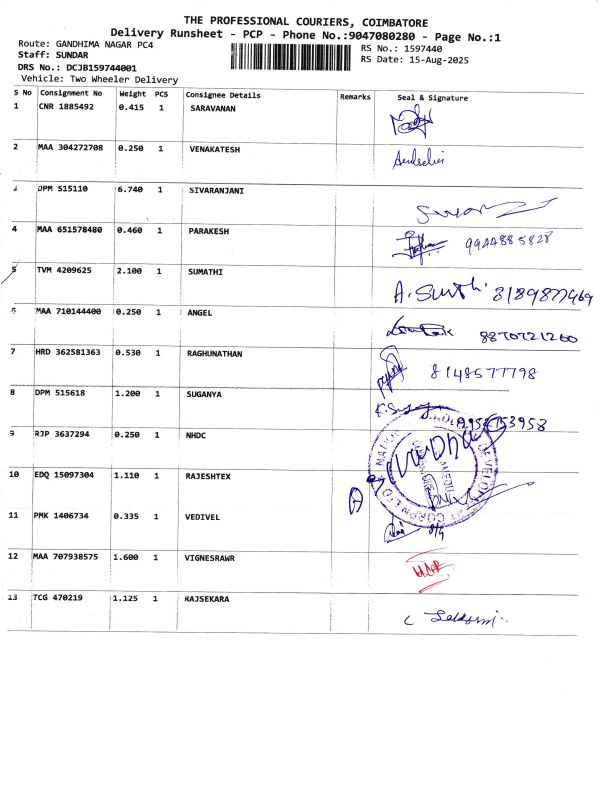 THE PROFESSIONAL COURIERS, COIMBATORE
Delivery Runsheet - PCP - Phone No.:9047080280 - Page No.:1
Route: GANDHIMA NAGAR PC4
RS No.: 1597440
Staff: SUNDAR
RS Date: 15-Aug-2025
DRS No.: DCJB159744001
Vehicle: Two Wheeler Delivery
S No Consignment No Weight PCS Consignee Details Remarks Seal & Signature
1 CNR 1885492 0.415 1 SARAVANAN
2 MAA 304272708 0.250 1 VENAKATESH
3 DPM 515110 6.740 1 SIVARANJANI
4 MAA 651578480 0.460 1 PARAKESH 9944885828
5 TVM 4209625 2.100 1 SUMATHI A. 8189877469
6 MAA 710144400 0.250 1 ANGEL 8870721260
7 HRD 362581363 0.530 1 RAGHUNATHAN 8148577798
8 DPM 515618 1.200 1 SUGANYA
9 RJP 3637294 0.250 1 NHDC
10 EDQ 15097304 1.110 1 RAJESHTEX
11 PMK 1406734 0.335 1 VEDIVEL
12 MAA 707938575 1.600 1 VIGNESRAWR
13 TCG 470219 1.125 1 RAJSEKARA